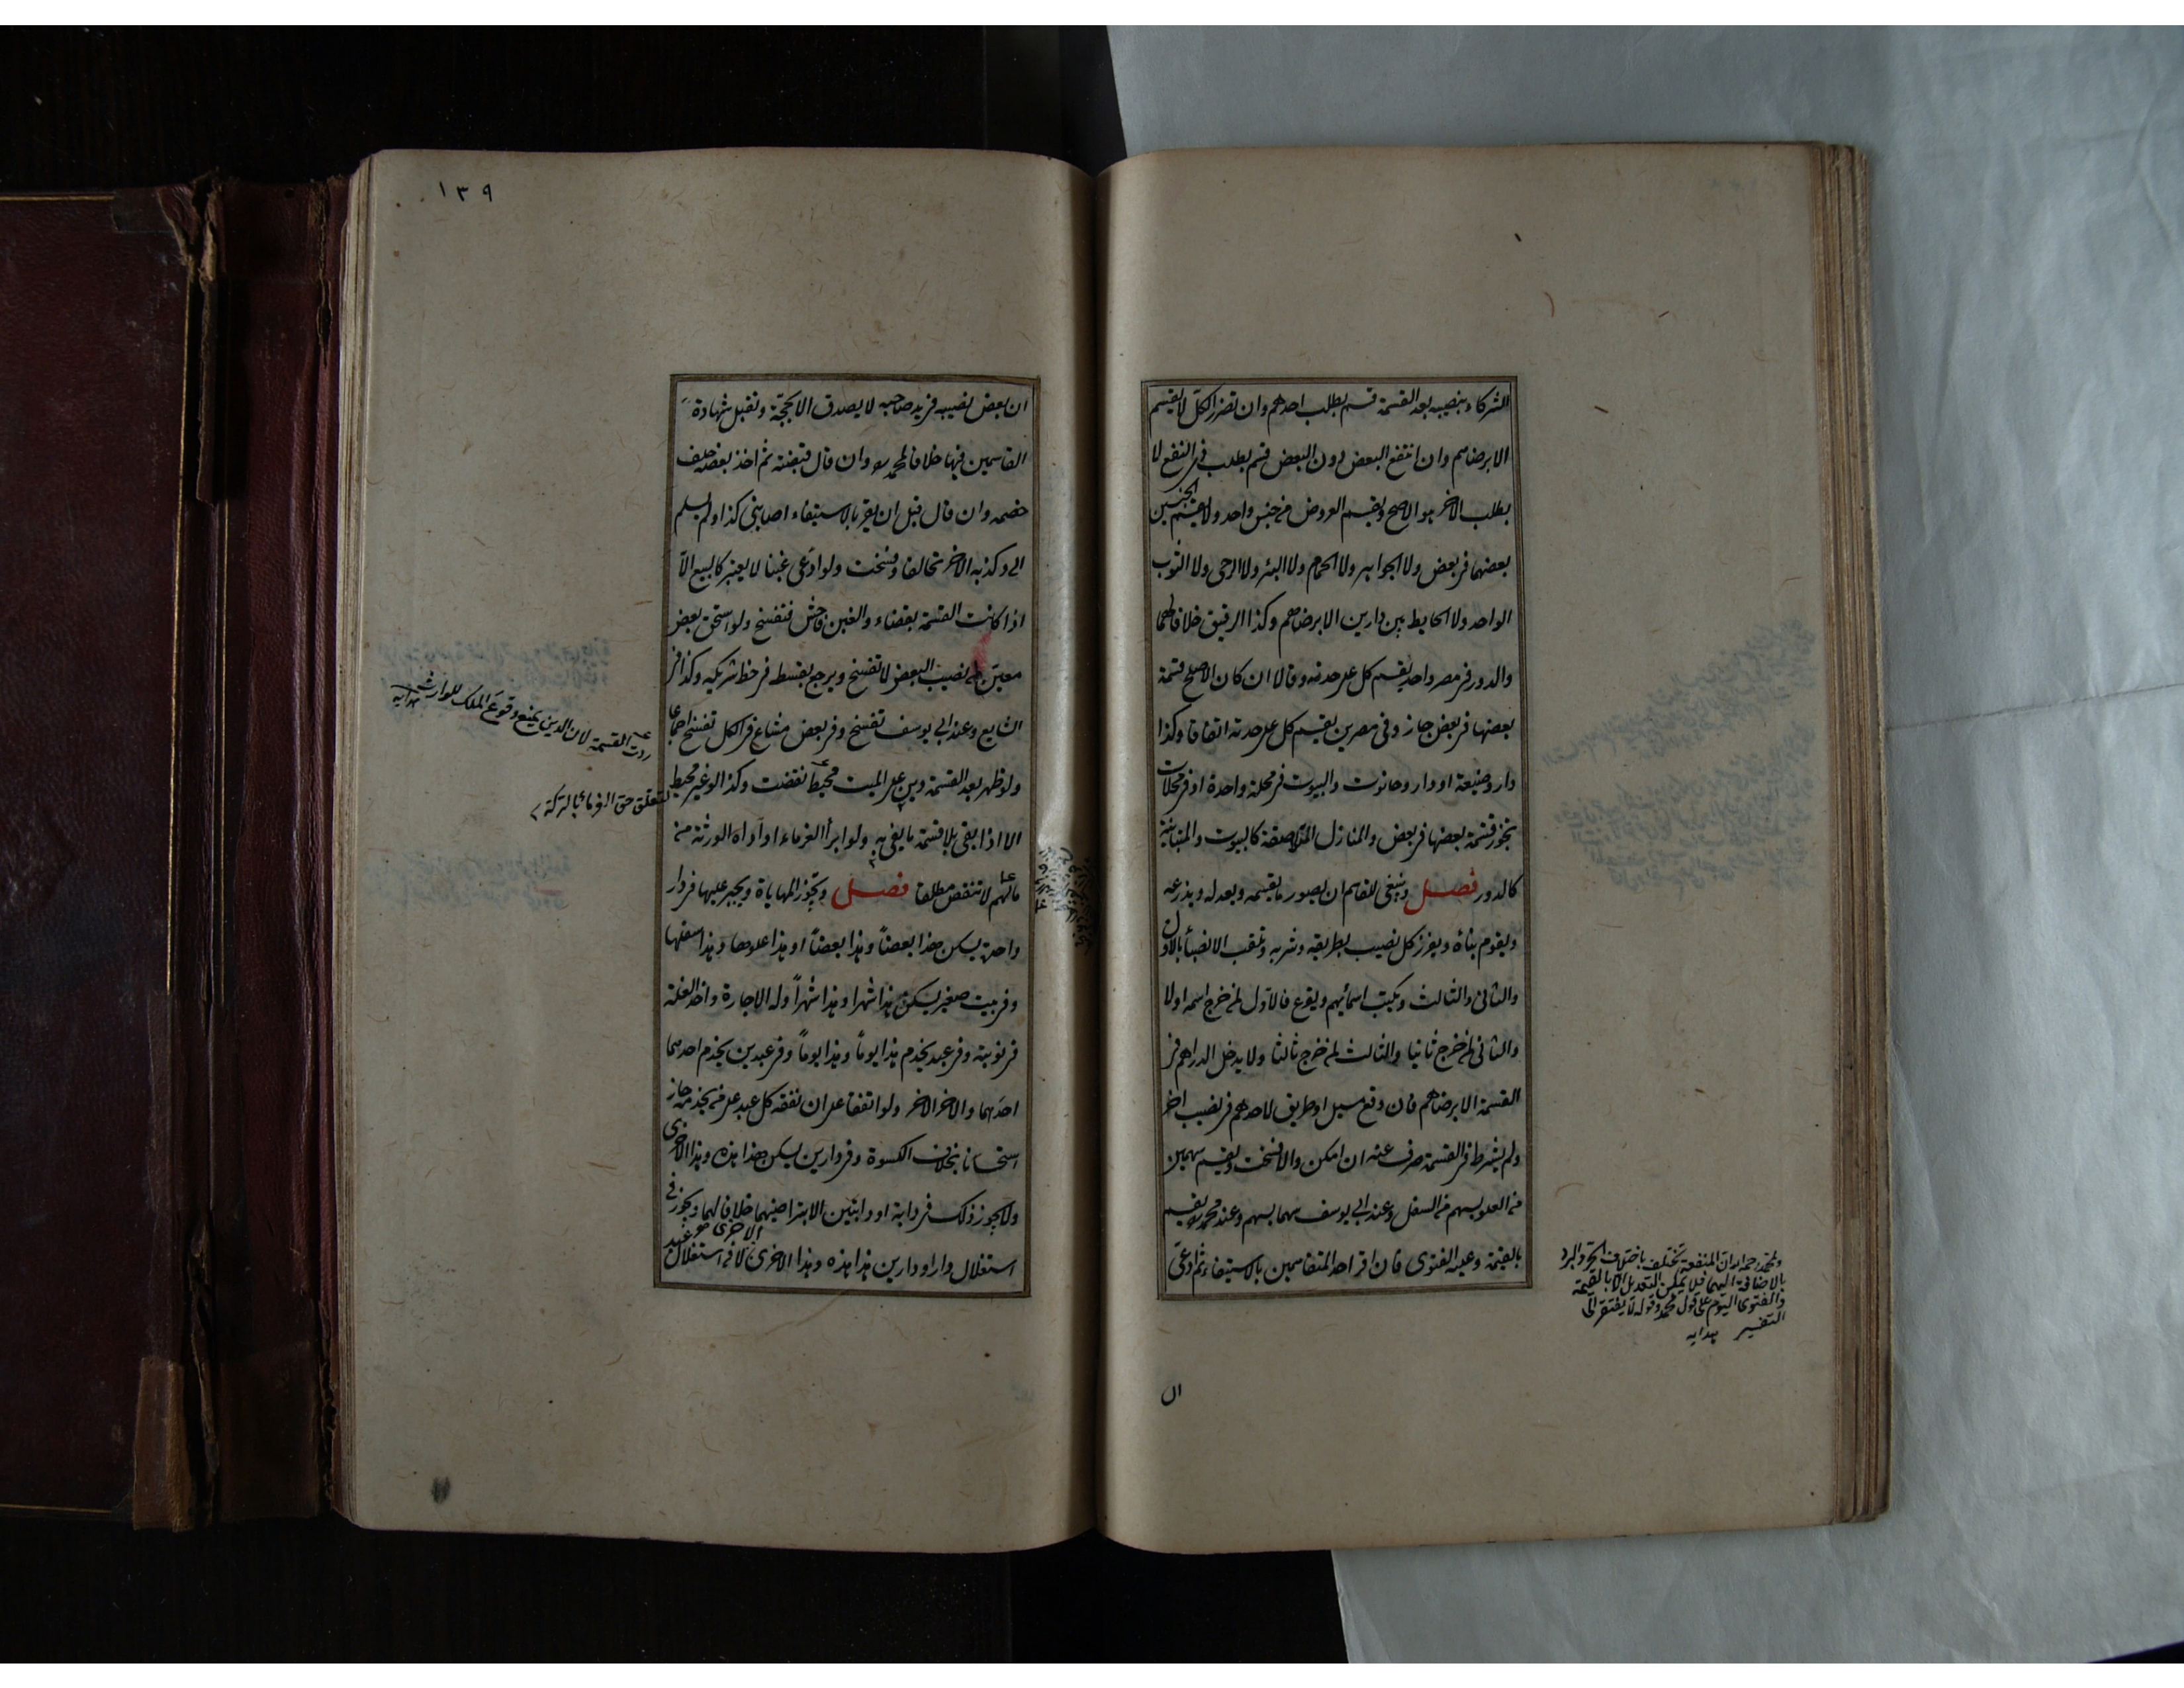 للشركاء بنصيبه بعد القسمة قسم بطلب احدهم وان تضرر الكل لا يقسم
الا برضاهم وان انتفع البعض دون البعض قسم بطلب ذى النفع لا
بطلب الاخر هو الاصح ويقسم العروض من جنس واحد ولا يقسم الجنسين
بعضهما فى بعض ولا الجواهر ولا الحمام ولا البئر ولا الرحى ولا الثوب
الواحد ولا الحايط بين دارين الا برضاهم وكذا الرقيق خلافا لهما
والدور فى مصر واحد يقسم كل على حدته وقالا ان كان الاصلح قسمة
بعضها فى بعض جاز وفى مصرين يقسم كل على حدته اتفاقا وكذا
دار وضيعة او دار وحانوت والبيوت فى محلة واحدة او فى محلات
يجوز قسمة بعضها فى بعض والمنازل المتلاصقة كالبيوت والمتباينة
كالدور فصل وينبغى للقاسم ان يصور ما يقسمه ويعدله ويذرعه
ويقوم بناءه ويفرز كل نصيب بطريقه وشربه وتلقب الانصباء بالاول
والثانى والثالث ويكتب اسمائهم ويقرع فالاول لمن خرج اسمه اولا
والثانى لمن خرج ثانيا والثالث لمن خرج ثالثا ولا يدخل الدراهم فى
القسمة الا برضاهم فان وقع مسيل او طريق لاحدهم فى نصيب اخر
ولم يشرط فى القسمة صرف عنه ان امكن والا فسخت ويقسم سهمين
من العلو بسهم من السفل وعند ابى يوسف سهما بسهم وعند محمد يقسم
بالقيمة وعليه الفتوى فان اقر احد المتقاسمين بالاستيفاء ثم ادعى
ولمحمد رحمه الله ان المنفعة تختلف باختلاف الحر والبرد
بالاضافة اليهما فلا يمكن التعديل الا بالقيمة
والفتوى اليوم على قول محمد وقوله لا يفتقر الى
التفسير هدايه
ان
١٣٩
ان بعض نصيبه فى يد صاحبه لا يصدق الا بحجة وتقبل شهادة
القاسمين فيها خلافا لمحمد وان قال قبضته ثم اخذ بعضه حلف
خصمه وان قال قبل ان يقر بالاستيفاء اصابنى كذا ولم يسلم
الى وكذبه الاخر تحالفا وفسخت ولو ادعى غبنا لا يعتبر كالبيع الا
اذا كانت القسمة بقضاء والغبن فاحش فتفسخ ولو استحق بعض
معين من نصيب البعض لا تفسخ ويرجع بقسطه فى حظ شريكه وكذا فى
الشايع وعند ابى يوسف تفسخ وفى بعض مشاع فى الكل تفسخ اجماعا
ولو ظهر بعد القسمة دين على الميت محيط نقضت وكذا لو غير محيط
الا اذا بقى بلا قسمة ما يفى به ولو ابرأ الغرماء او اداه الورثة من
مالهم لا تنقض مطلقا فصل ويجوز المهاياة ويجبر عليها فى دار
واحدة يسكن هذا بعضا وهذا بعضا او هذا علوها وهذا سفلها
وفى بيت صغير يسكن هذا شهرا وهذا شهرا وله الاجارة واخذ الغلة
فى نوبته وفى عبد يخدم هذا يوما وهذا يوما وفى عبدين يخدم احدهما
احدهما والاخر الاخر ولو اتفقا على ان نفقة كل عبد على من يخدمه جاز
استحسانا بخلاف الكسوة وفى دارين يسكن هذا هذه وهذا الاخرى
ولا يجوز ذلك فى دابة او دابتين الا بتراضيهما خلافا لهما ويجوز فى
استغلال دار او دارين هذا هذه وهذا الاخرى لا فى استغلال
ردت القسمة لان الدين يمنع وقوع الملك للوارث هدايه
لتعلق حق الغرماء بالتركة